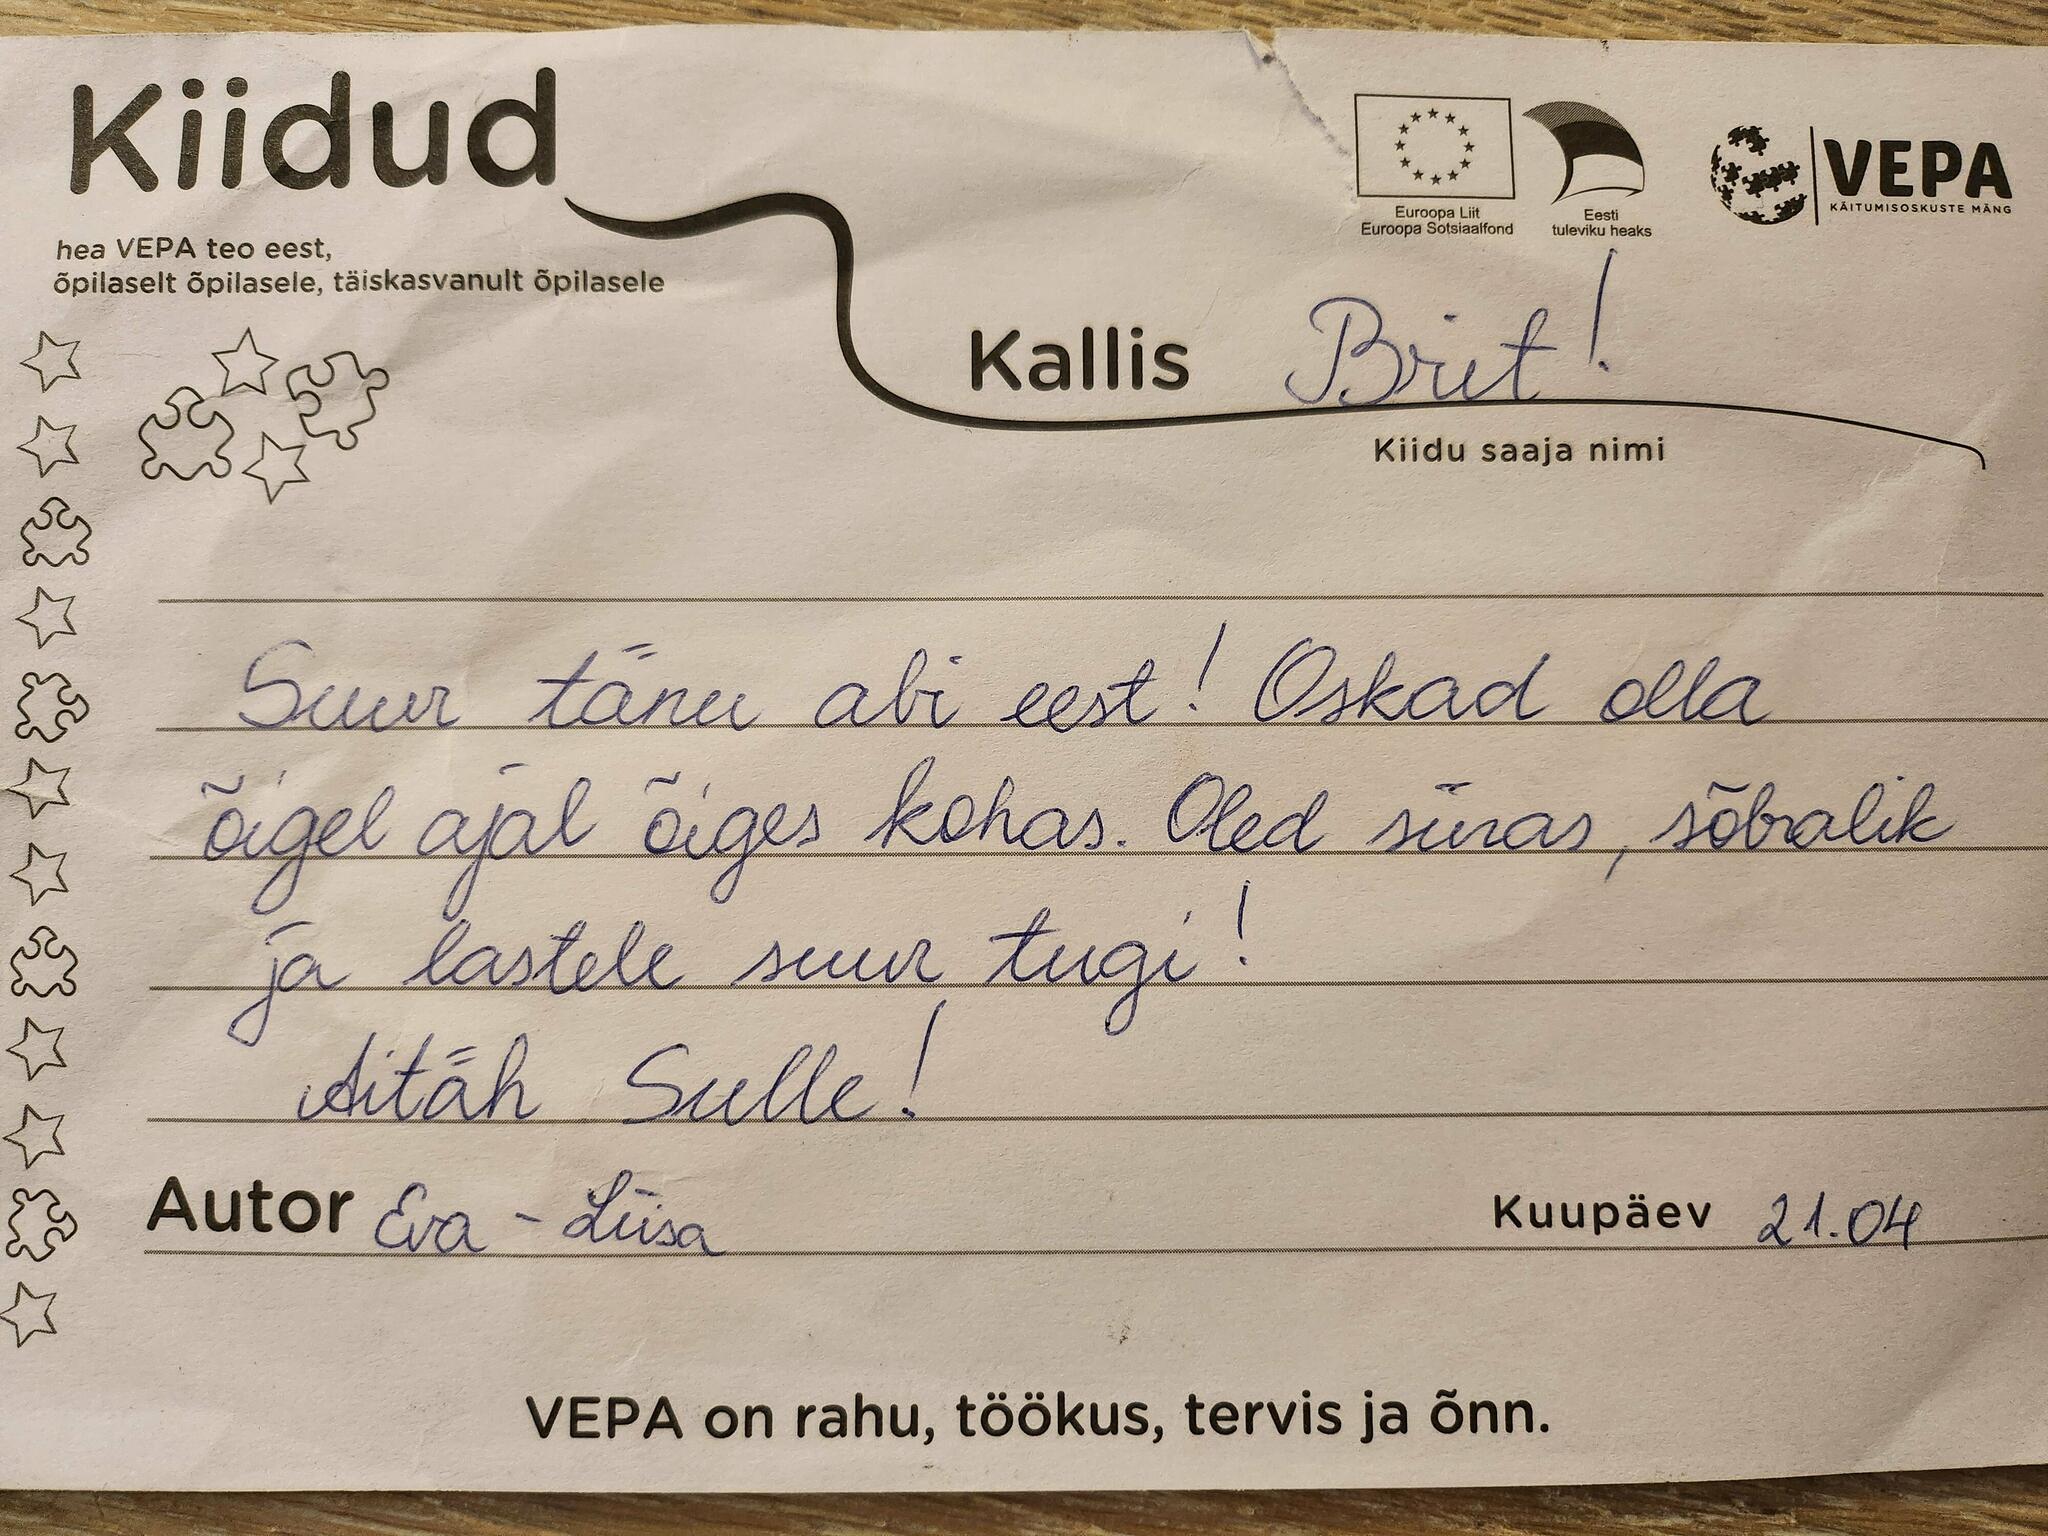 Kiidud
hea VEPA teo eest,
õpilaselt õpilasele, täiskasvanult õpilasele
Euroopa Liit
Euroopa Sotsiaalfond
Eesti
tuleviku heaks
VEPA
KÄITUMISOSKUSTE MÄNG
Kallis Brit!
Kiidu saaja nimi
Suur tänu abi eest! Oskad olla
õigel ajal õiges kohas. Oled siiras, sõbralik
ja lastele suur tugi!
Aitäh Sulle!
Autor Eva-Liisa
Kuupäev 21.04
VEPA on rahu, töökus, tervis ja õnn.